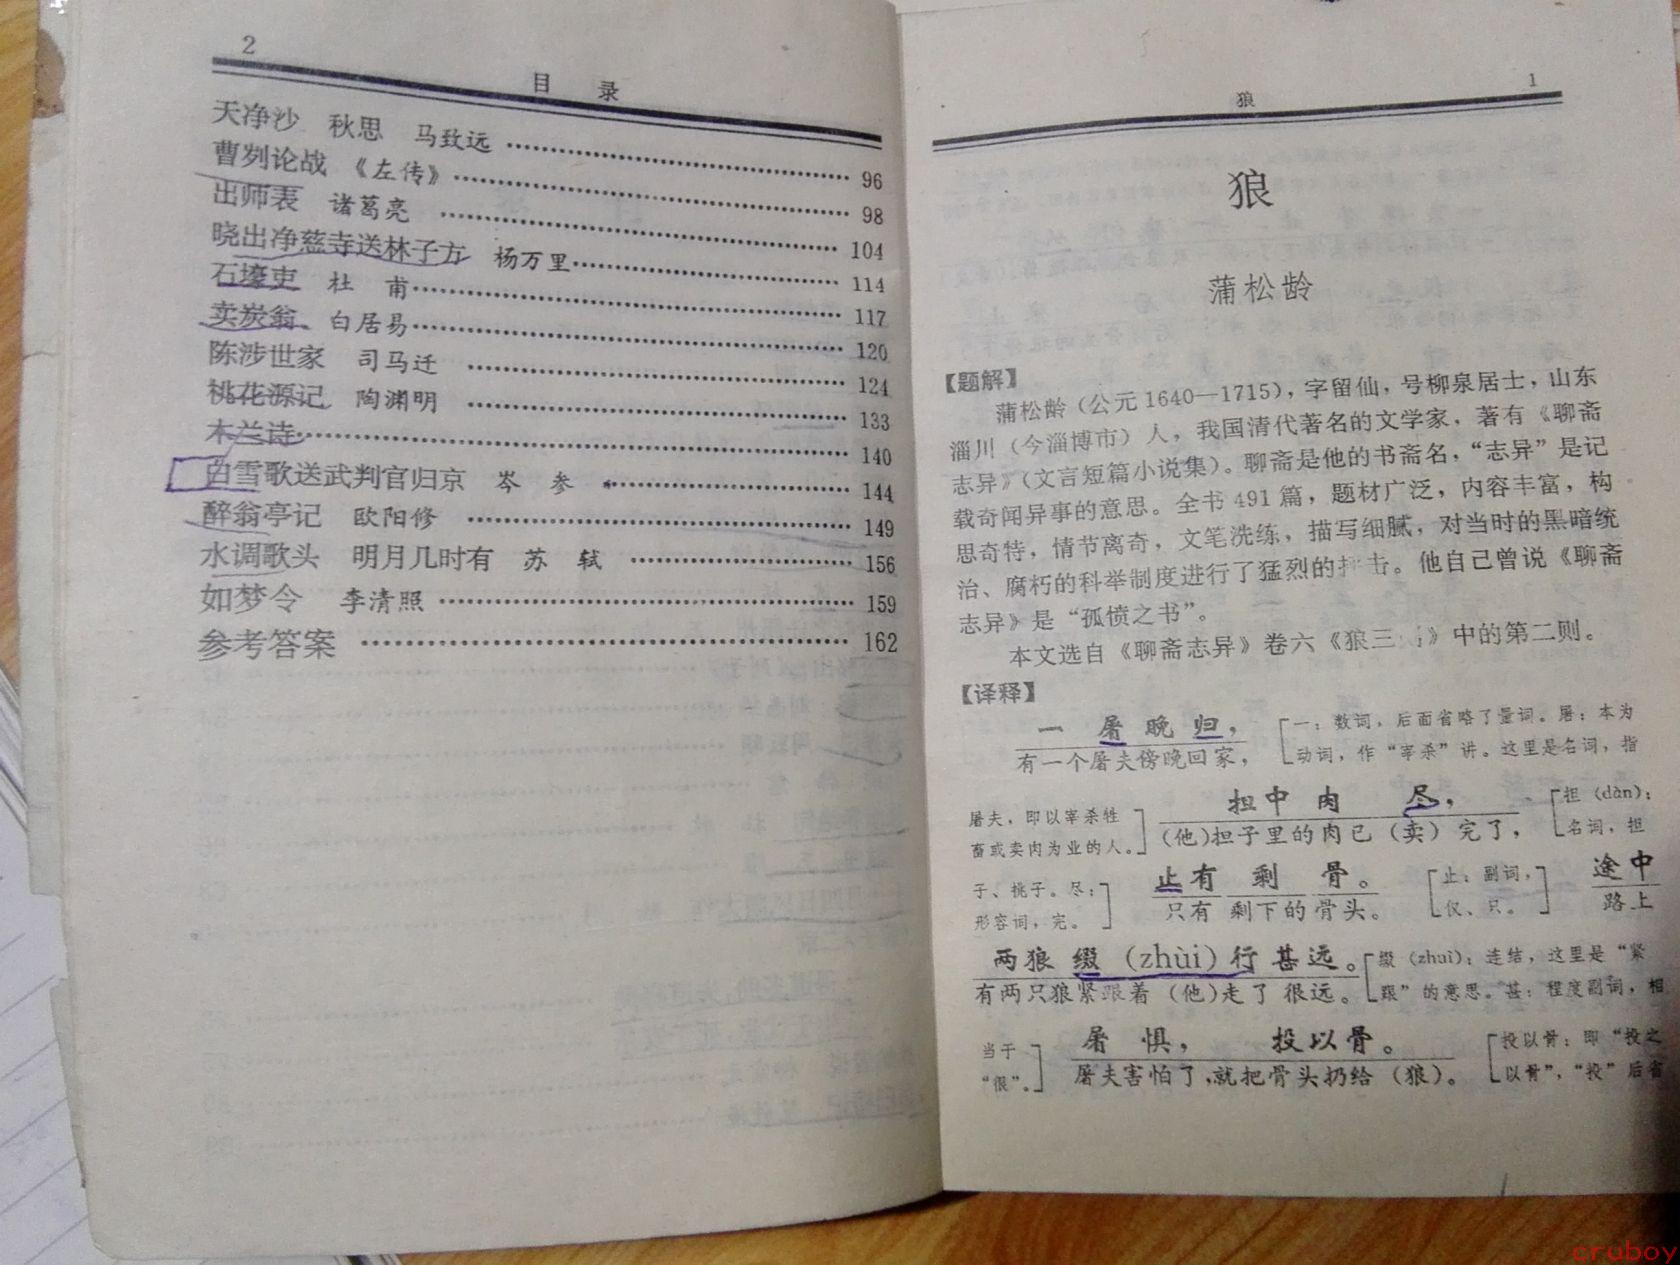 2
目 录
天净沙 秋思 马致远 …… 96
曹刿论战 《左传》 …… 98
出师表 诸葛亮 …… 104
晓出净慈寺送林子方 杨万里 …… 114
石壕吏 杜 甫 …… 117
卖炭翁 白居易 …… 120
陈涉世家 司马迁 …… 124
桃花源记 陶渊明 …… 133
木兰诗 …… 140
白雪歌送武判官归京 岑 参 …… 144
醉翁亭记 欧阳修 …… 149
水调歌头 明月几时有 苏 轼 …… 156
如梦令 李清照 …… 159
参考答案 …… 162
狼 1
狼
蒲松龄
【题解】
蒲松龄（公元1640—1715），字留仙，号柳泉居士，山东
淄川（今淄博市）人，我国清代著名的文学家，著有《聊斋
志异》（文言短篇小说集）。聊斋是他的书斋名，“志异”是记
载奇闻异事的意思。全书491篇，题材广泛，内容丰富，构
思奇特，情节离奇，文笔洗练，描写细腻，对当时的黑暗统
治、腐朽的科举制度进行了猛烈的抨击。他自己曾说《聊斋
志异》是“孤愤之书”。
本文选自《聊斋志异》卷六《狼三 》中的第二则。
【译释】
一 屠 晚 归， 一：数词，后面省略了量词。屠：本为
有一个屠夫傍晚回家， 动词，作“宰杀”讲。这里是名词，指
屠夫，即以宰杀牲 担中 肉 尽， 担（dàn）：
畜或卖肉为业的人。 (他)担子里的肉已（卖）完了， 名词，担
子、挑子。尽： 止有 剩 骨。 止：副词， 途中
形容词，完。 只有 剩下的 骨头。 仅、只。 路上
两狼 缀（zhùi）行 甚远。 缀（zhuì）：连结，这里是“紧
有两只狼紧跟着（他)走了 很远。 跟”的意思。甚：程度副词，相
当于 屠 惧， 投以骨。 投以骨：即“投之
“很”。 屠夫害怕了，就把骨头扔给（狼）。 以骨”，“投”后省
cruboy